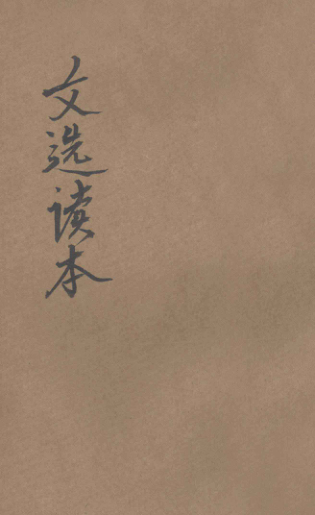 文选读本